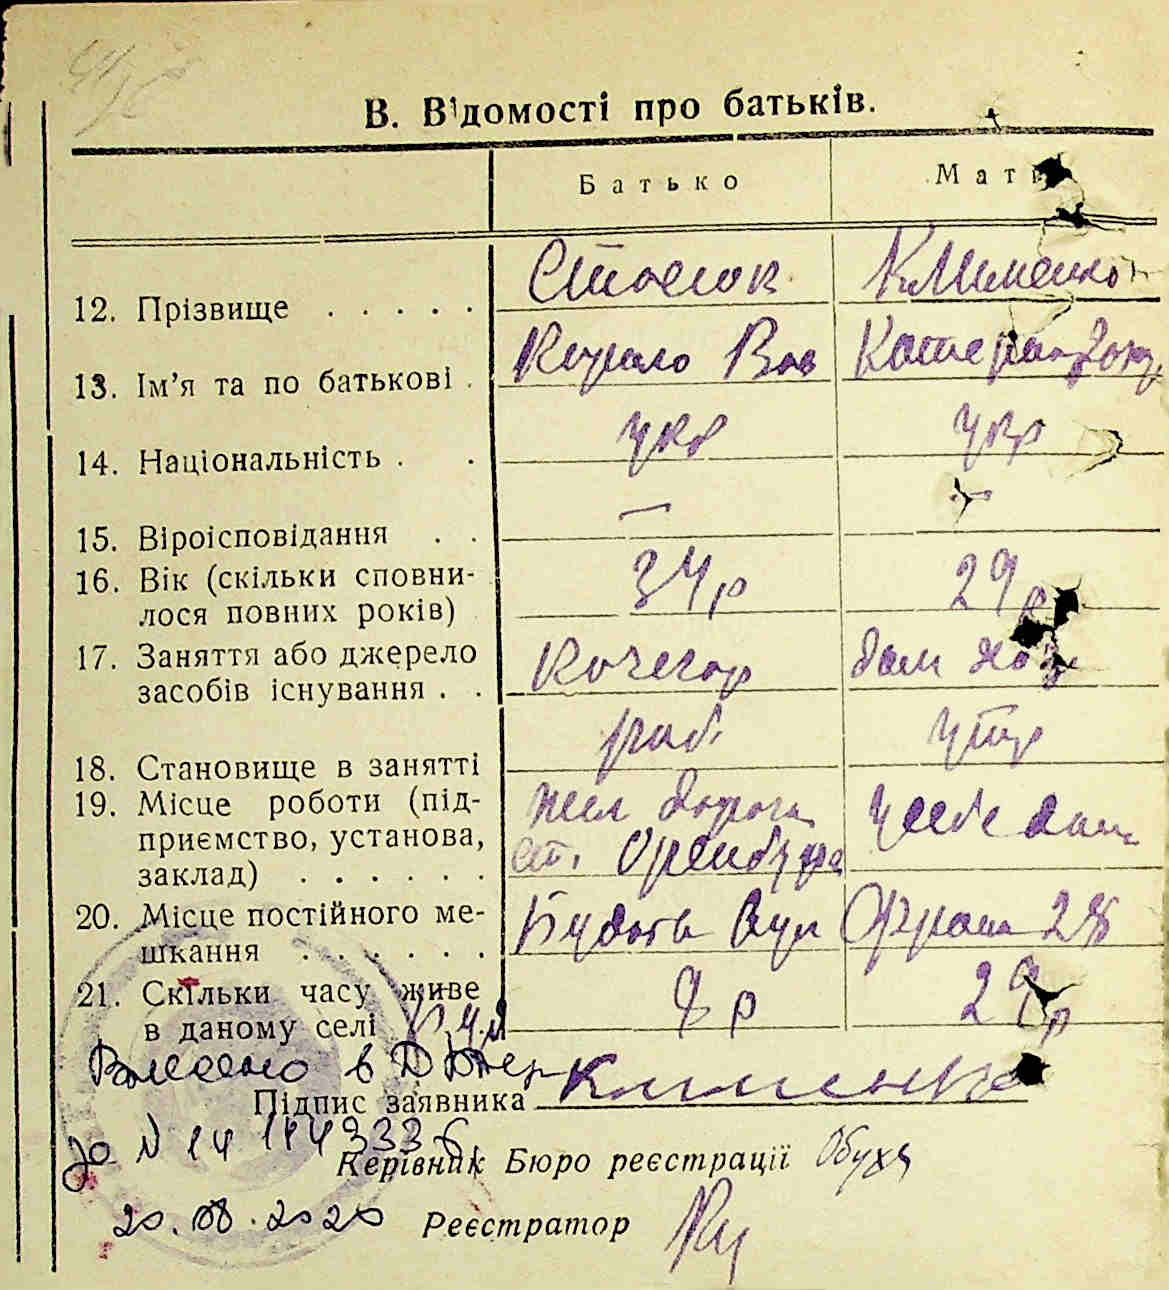 В. Відомості про батьків.
Батько Мати
12. Прізвище . . . . . Клименко
13. Ім'я та по батькові . Кирило Вас Катерина
14. Національність . . укр укр
15. Віроісповідання . . — —
16. Вік (скільки сповни-
лося повних років) 34 р 29 р
17. Заняття або джерело
засобів існування . . Кочегар дом хоз
18. Становище в занятті раб. утр
19. Місце роботи (під-
приємство, установа,
заклад) . . . . . . жел дорога ст. Оренбург у себе дома
20. Місце постійного ме-
шкання . . . . . . вул 28
21. Скільки часу живе
в даному селі 9 р 29 р
в
Підпис заявника Клименко
до N 14
Керівник Бюро реєстрації
20.08.2020 Реєстратор